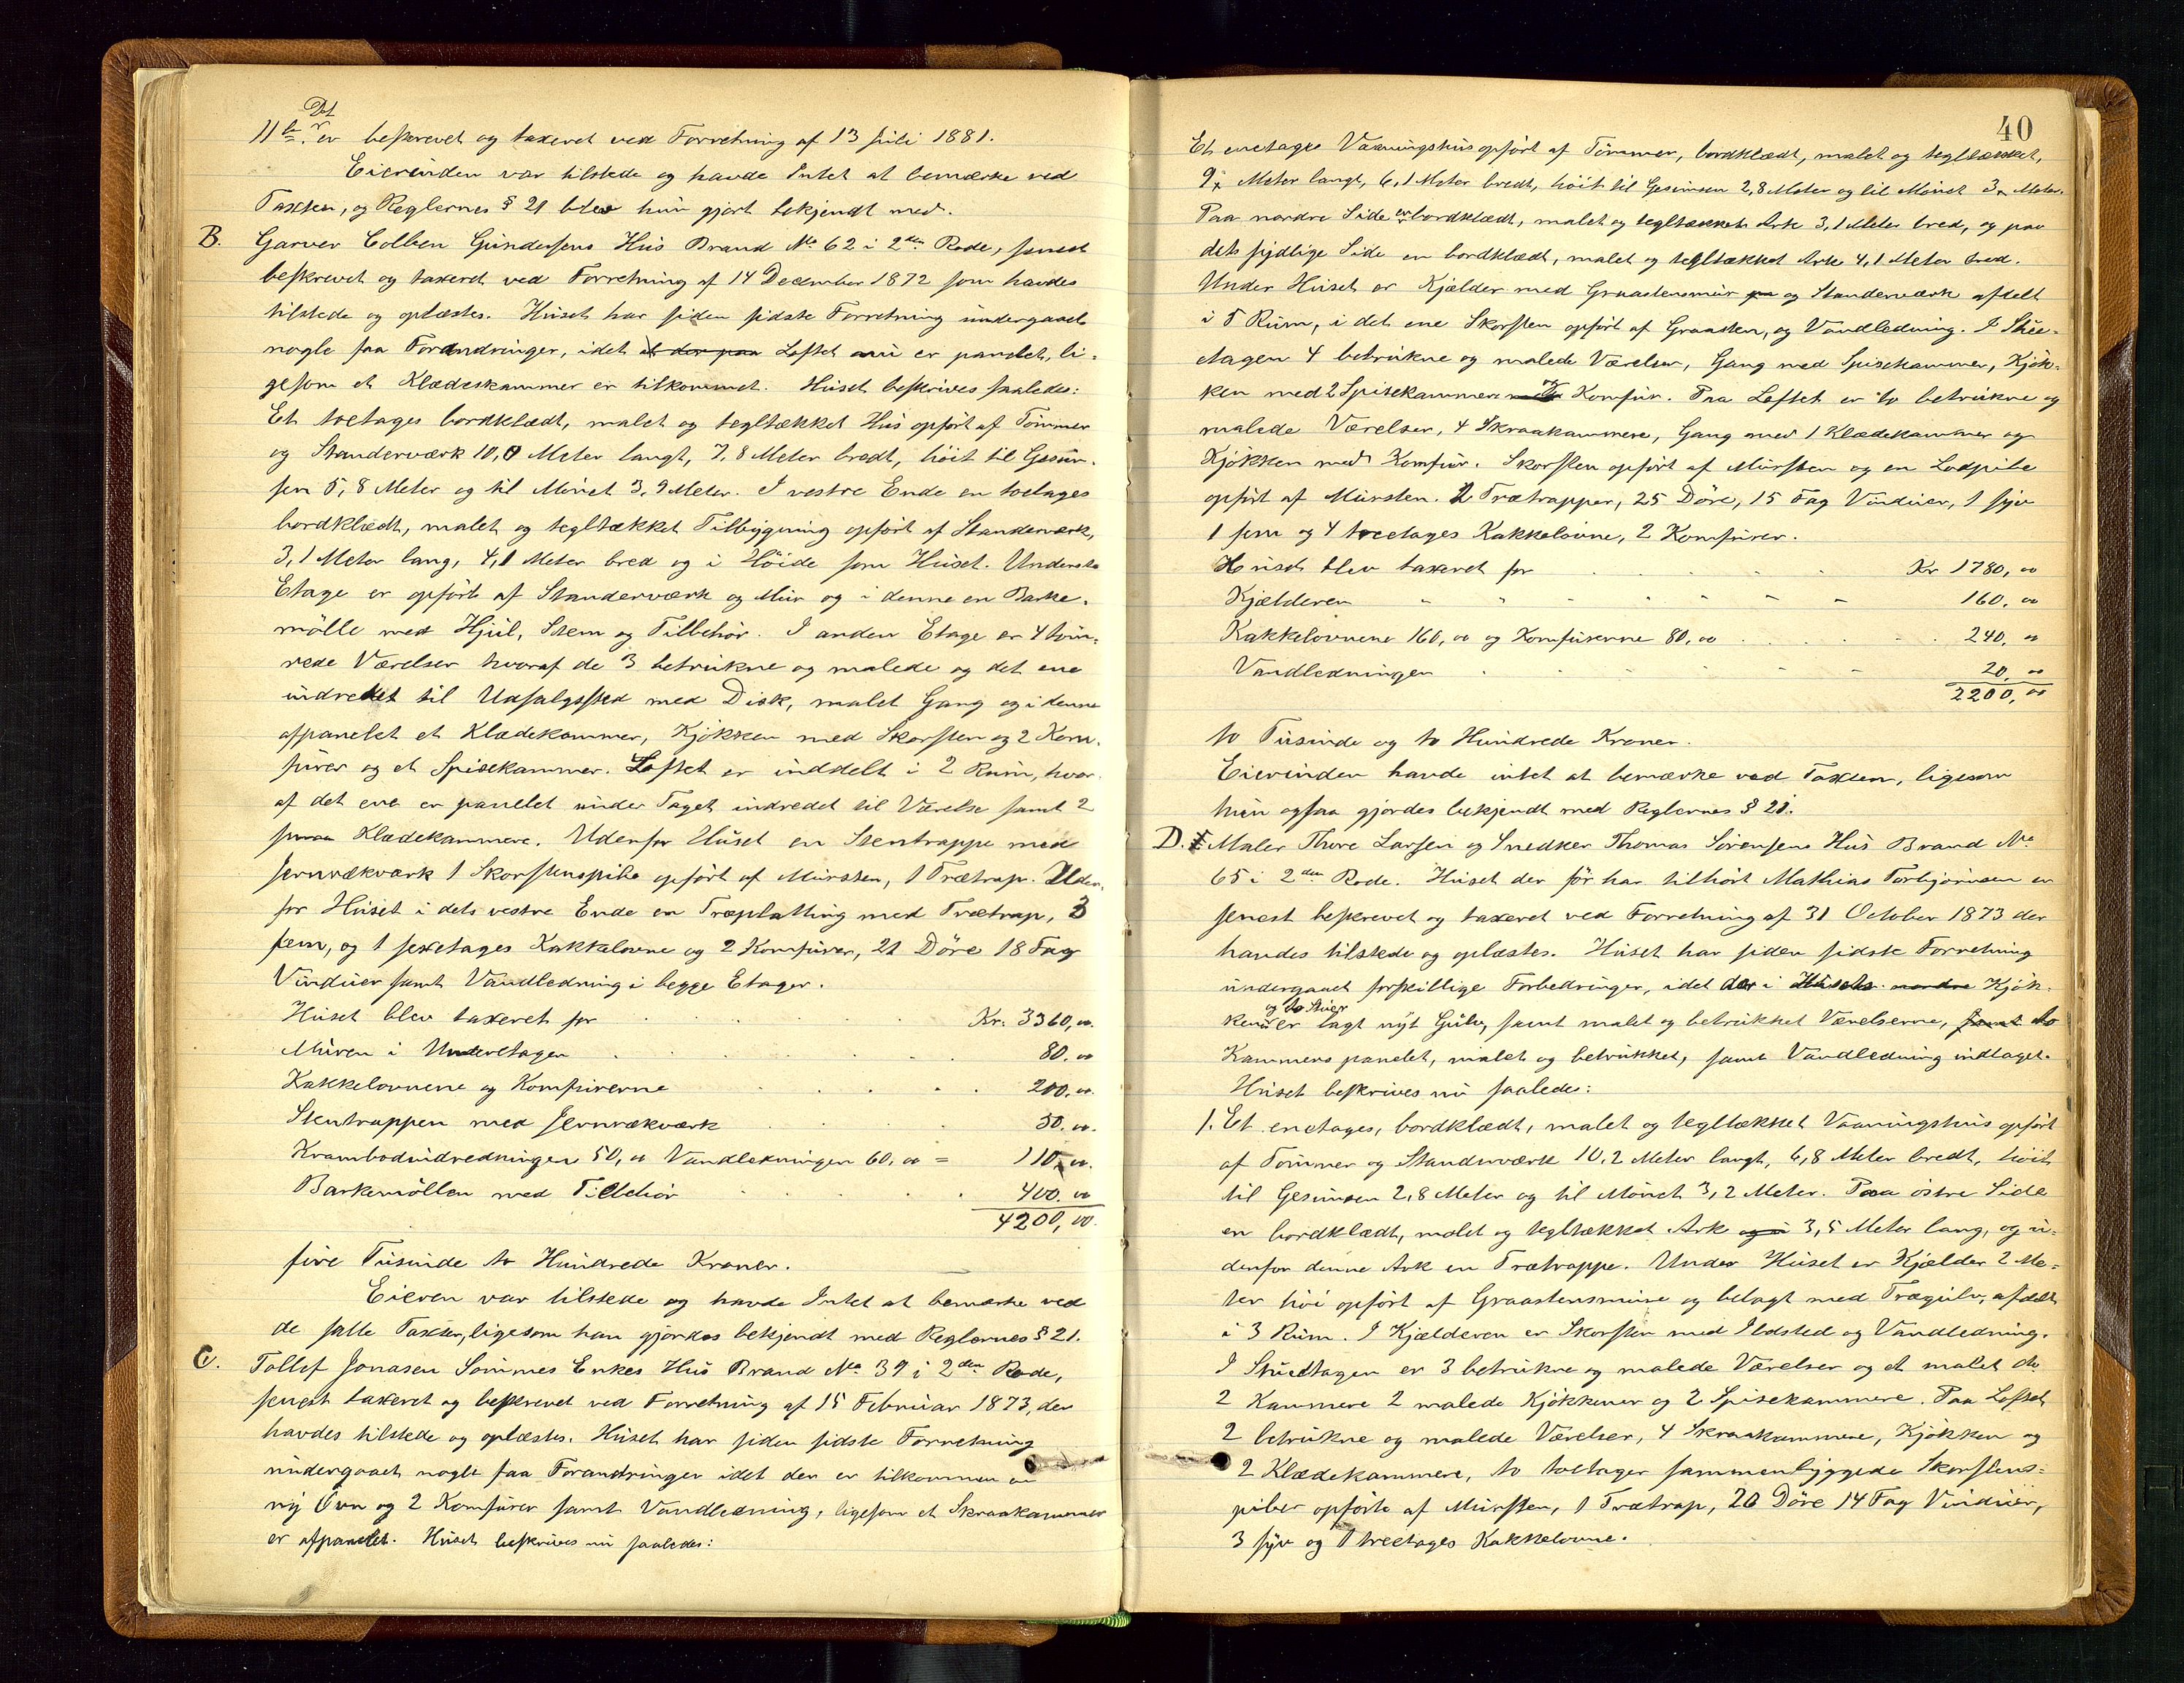 Det
11te er beskrevet og taxeret ved Forretning af 13 Juli 1881.
Eierinden var tilstede og havde Intet at bemærke ved
Taxten, og Reglernes § 21 blev hun gjort bekjendt med.
B. Garver Colben Gundersens Hus Brand No 62 i 2den Rode, senest
beskrevet og taxeret ved Forretning af 14 December 1872 som havdes
tilstede og oplæstes. Huset har siden sidste Forretning undergaaet
nogle faa Forandringer, idet at der paa Loftet nu er panelet, li-
gesom et Klædeskammer er tilkommet. Huset beskrives saaledes:
Et toetages bordklædt, malet og tegltækket Hus opført af Tømmer
og Standerværk 10,0 Meter langt, 7,8 Meter bredt, høit til Gesim-
sen 5,8 Meter og til Mønet 3,9 Meter. I vestre Ende en toetages
bordklædt, malet og tegltækket Tilbygning opført af Standerværk,
3,1 Meter lang, 4,1 Meter bred og i Høide som Huset. Underste
Etage er opført af Standerværk og Mur og i denne en Barke-
mølle med Hjul, Steen og Tilbehør. I anden Etage er 4 tøm-
rede Værelser hvoraf de 3 betrukne og malede og det ene
indredet til Udsalgssted med Disk, malet Gang og i denne
afpanelet et Klædekammer, Kjøkken med Skorsten og 2 Kom-
fürer og et Spisekammer. Loftet er inddelt i 2 Rum, hvor-
af det ene er panelet under Taget indredet til Værelse samt 2
smaa Klædekammere. Udenfor Huset en Stentrappe med
Jernrækværk 1 Skorstenspibe opført af Mursten, 1 Trætrap. Uden-
for Huset i dets vestre Ende en Træplatting med Trætrap, 3
fem, og 1 sexetages Kakkelovne og 2 Komfurer, 21 Døre 18 Fag
Vinduer samt Vandledning i begge Etager.
Huset blev taxeret for Kr. 3360,00.
Muren i Underetagen 80.00
Kakkelovnene og Komfurerne 200.00.
Stentrappen med Jernrækværk 50.00.
Krambodindredningen 50,00 Vandledningen 60,00 = 110,00.
Barkemøllen med Tilbehør 400.00
4200,00.
fire Tusinde to Hundrede Kroner.
Eieren var tilstede og havde Intet at bemærke ved
de satte Taxter, ligesom han gjordes bekjendt med Reglernes § 21.
C. Tollef Jonasen Sømmes Enkes Hus Brand No 39 i 2den Rode,
senest taxeret og beskrevet ved Forretning af 15 Februar 1873, der
havdes tilstede og oplæstes. Huset har siden sidste Forretning
undergaaet nogle faa Forandringer idet der er tilkommen en
ny Ovn og 2 Komfurer samt Vandledning, ligesom et Skraakammer
er afpanelet. Huset beskrives nu saaledes:
40
Et enetages Vaaningshus opført af Tømmer, bordklædt, malet og tegltækket,
Meter langt, 6,1 Meter bredt, høit til Gesimsen 2,8 Meter og til Mønet Meter.
Paa nordre Side en bordklædt, malet og tegltækket Ark 3,1 Meter bred, og paa
dets sydlige Side en bordklædt, malet og tegltækket Ark 4,1 Meter bred.
Under Huset er Kjælder med Graastensmur og Standerværk afdelt
i 5 Rum, i det ene Skorsten opført af Graasten, og Vandledning. I Stue-
etagen 4 betrukne og malede Værelser, Gang med Spisekammer, Kjøk-
ken med 2 Spisekammere og Komfur. Paa Loftet er to betrukne og
malede Værelser, 4 Skraakammere, Gang med 1 Klædekammer og
Kjøkken med Komfur. Skorsten opført af Mursten og en Lodpibe
opført af Mursten. 2 Trætrapper, 25 Døre, 15 Fag Vinduer, 1 syv
1 fem og 4 treetages Kakkelovne, 2 Komfurer.
Huset blev taxeret for Kr 1780,00
Kjælderen 160,00
Kakkelovnene 160,00 og Komfurerne 80,00 240,00
Vandledningen 20,00
2200,00
to Tusinde og to Hundrede Kroner.
Eierinden havde intet at bemærke ved Taxten, ligesom
hun ogsaa gjordes bekjendt med Reglernes § 21.
D. Maler Thore Larsen og Snedker Thomas Sørensens Hus Brand No
65 i 2den Rode. Huset der før har tilhørt Mathias Torbjørnsen er
senest beskrevet og taxeret ved Forretning af 31 October 1873 der
havdes tilstede og oplæstes. Huset har siden sidste Forretning
undergaaet forskillige Forbedringer, idet der i Husets nordre Kjøk-
og to Stuer
kener er lagt nyt Gulv, samt malet og betrukket Værelserne, samt to
Kammere panelet, malet og betrukket, samt Vandledning indlaget.
Huset beskrives nu saalede:
1. Et enetages, bordklædt, malet og tegltækket Vaaningshus opført
af Tømmer og Standerværk 10,2 Meter langt, 6,8 Meter bredt, høit
til Gesimsen 2,8 Meter og til Mønet 3,2 Meter. Paa østre Side
en bordklædt, malet og tegltækket Ark og i 3,5 Meter lang, og u-
denfor denne Ark en Trætrappe. Under Huset er Kjælder 2 Me-
ter høi opført af Graastensmure og belagt med Trægulv, afdelt
i 3 Rum. I Kjælderen er Skorsten med Ildsted og Vandledning.
I Stueetagen er 3 betrukne og malede Værelser og et malet do
2 Kammere 2 malede Kjøkkener og 2 Spisekammere. Paa Loftet
2 betrukne og malede Værelser, 4 Skraakammere, Kjøkken og
2 Klædekammere, to toetages sammenbyggede Skorstens-
piber opførte af Mursten, 1 Trætrap, 20 Døre 14 Fag Vinduer,
3 syv og 1 treetages Kakkelovne.